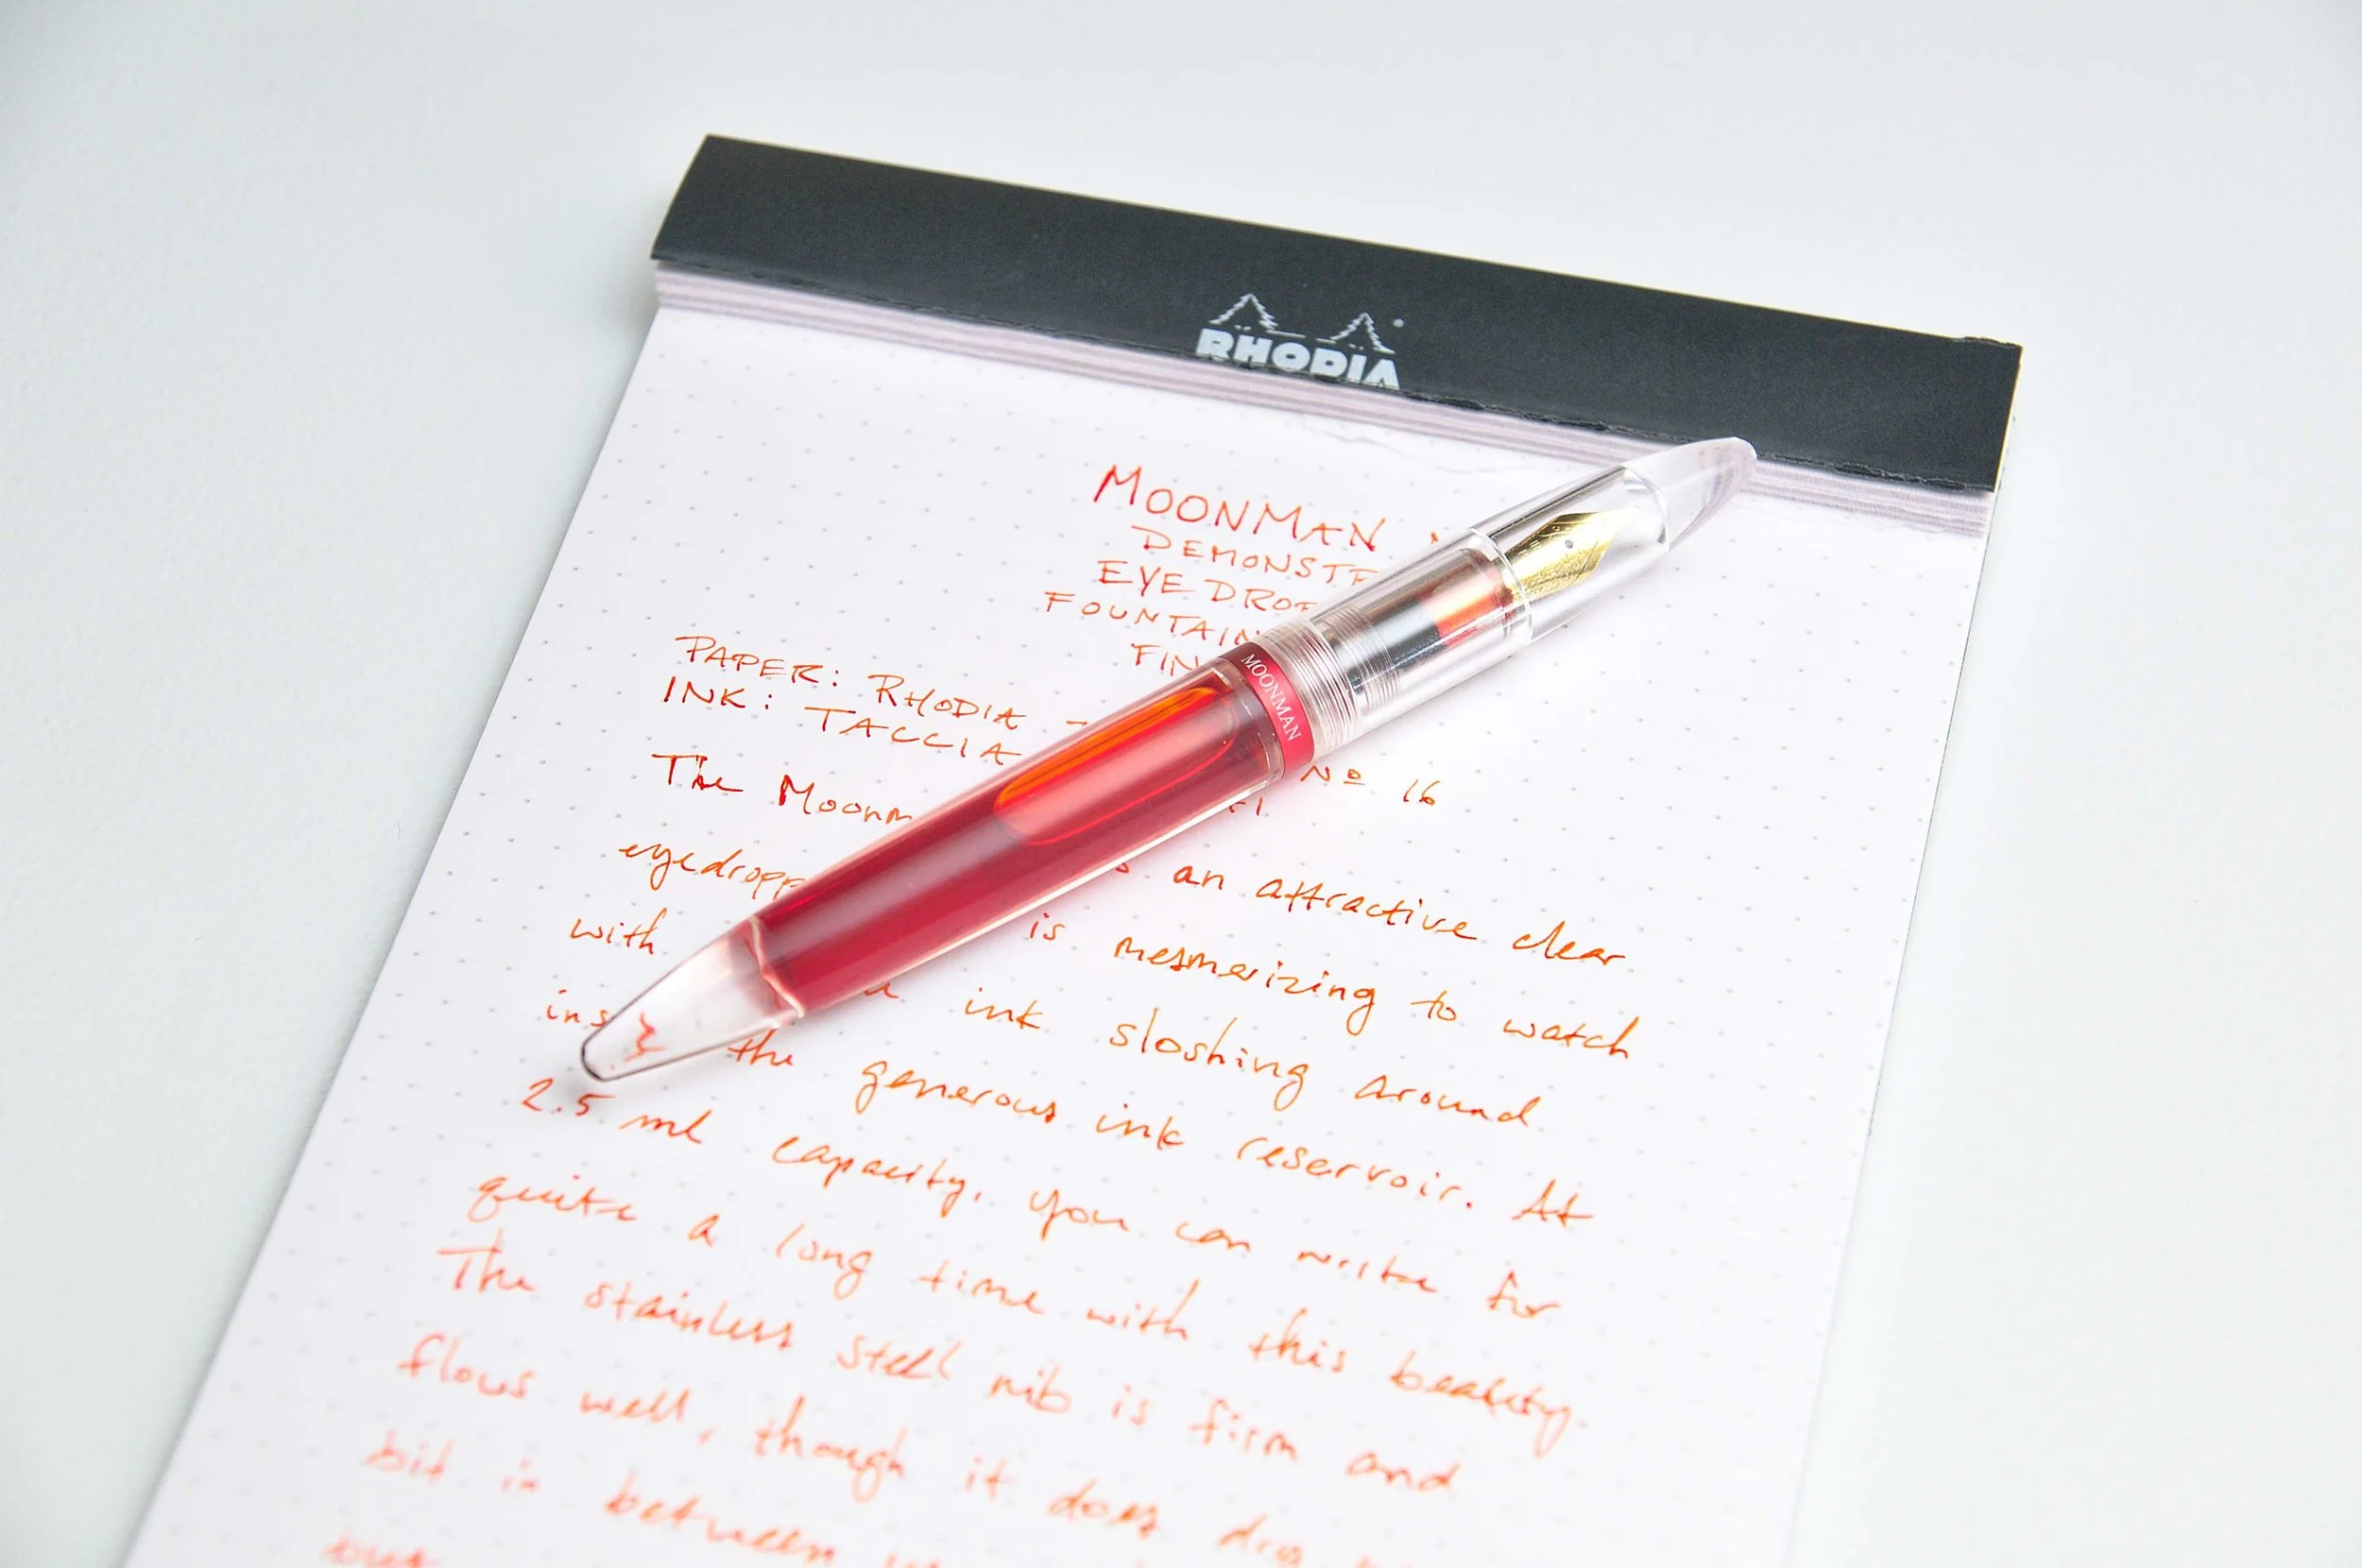 RHODIA
MOONMAN
DEMONSTR
EYEDROP
FOUNTAIN
FIN
PAPER: RHODIA - Nº 16
INK: TACCIA
MOONMAN
The Moonm
eyedropp an attractive clear
with is mesmerizing to watch
ins ink sloshing around
the generous ink reservoir. At
2.5 ml capacity, you can write for
quite a long time with this beauty.
The stainless steel nib is firm and
flows well, though it does dry
bit in between